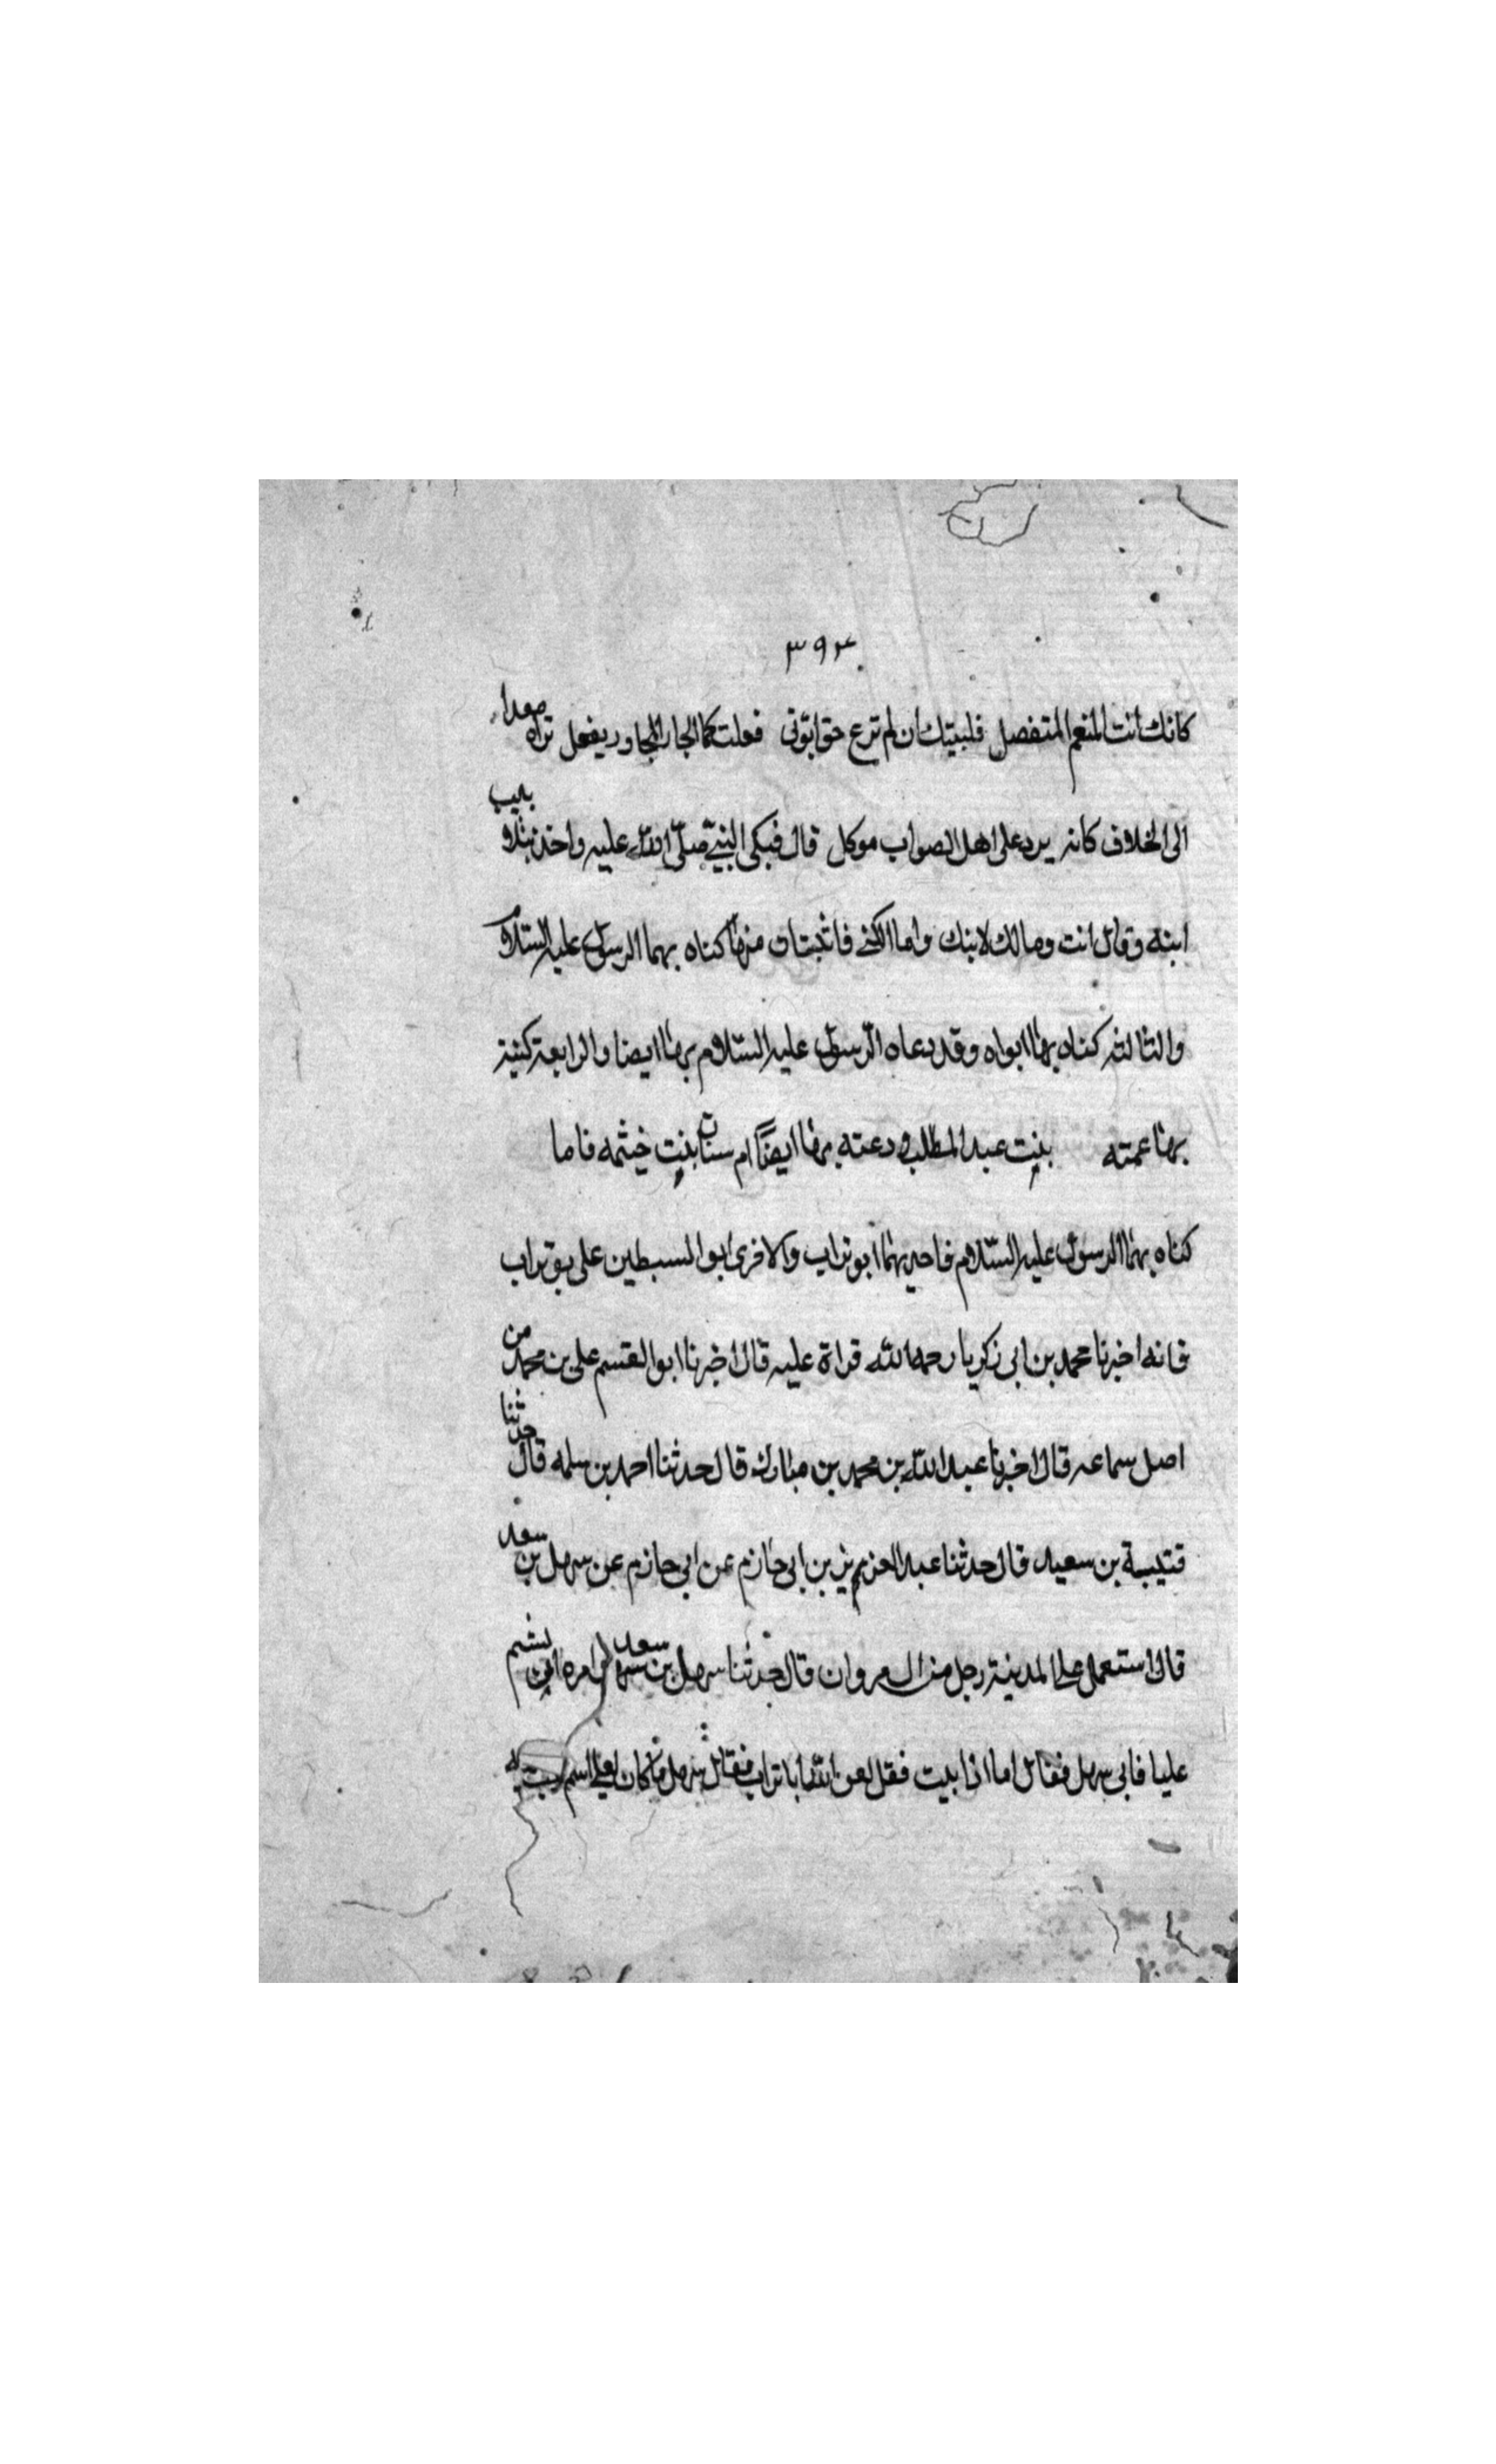 ٣٩٣
كانك انت المنعم المتفضل فليتك ان لم ترع حق ابوتى فعلت كما الجار المجاور يفعل تراه معدا
الى الخلاف كانه يرد على اهل الصواب موكل قال فبكى النبي صلى الله عليه واخذ بتلابيب
ابنه وقال انت ومالك لابنك واما الكنى فاثبتان منها كناه بهما الرسول عليه السلام
والثالثه كناه بها ابواه وقد دعاه الرسول عليه السلام بها ايضا والرابعة كنيته
بها عمته بنت عبد المطلب ودعته بها ايضًا ام سنان بنت خيثمه فاما
كناه بهما الرسول عليه السلام فاحديهما ابو تراب والاخرى ابو السبطين على بو تراب
فانه اخبرنا محمد بن ابى زكريا رحمه الله قراة عليه قال اخبرنا ابو القسم على بن محمد من
اصل سماعه قال اخبرنا عبد الله بن محمد بن مبارك قال حدثنا احمد بن سلمه قال حدثنا
قتيبة بن سعيد قال حدثنا عبد العزيز بن ابى حازم عن ابى حازم عن سهل بن سعد
قال استعمل على المدينة رجل من ال مروان قال حدثنا سهل بن سعد امره ان يشتم
عليا فابى سهل فقال اما اذا بيت فقل لعن الله ابا تراب فقال سهل ما كان لعلى اسم